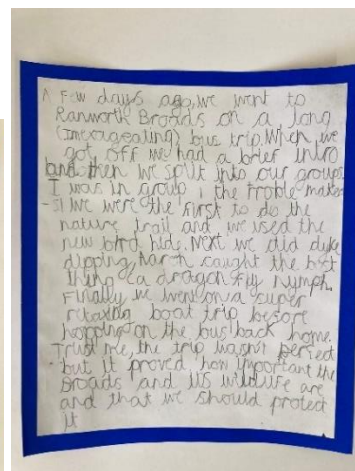 A Few days ago, we went to
Ranworth Broads on a long
bus trip. When we
got off we had a brief intro
and then we split into our groups
I was in group 1 the troble maker
-s! We were the first to do the
nature trail and we used the
new bird hide. Next we did dyke
dipping. caught the best
thing (a dragon fly nymph.
Finally we went on a super
relaxing boat trip before
hopping on the bus back home.
Trust me, the trip wasn't perfect
but it proved how important the
Broads and its wildlife are
and that we should protect
it